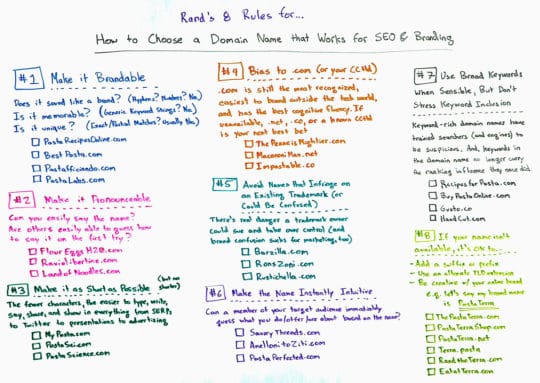 Rand's 8 Rules for...
How to Choose a Domain Name that Works for SEO & Branding
#1 Make it Brandable
Does it sound like a brand? (Hyphens? Numbers? No)
Is it memorable? (Generic Keyword Strings? No.)
Is it unique? (Exact/Partial Matches? Usually No.)
PastaRecipesOnline.com
BestPasta.com
PastaAficionado.com
PastaLabs.com
#2 Make it Pronounceable
Can you easily say the name?
Are others easily able to guess how
to say it on the first try?
FlourEggsH20.com
RaviolIbertine.com
LandofNoodles.com
#3 Make it as Short as Possible (but no shorter)
The fewer characters, the easier to type, write,
say, share, and show in everything from SERPs
to Twitter to presentations to advertising
MyPasta.com
PastaSci.com
PastaScience.com
#4 Bias to .com (or your CCTLD)
.com is still the most recognized,
easiest to brand outside the tech world,
and has the best cognitive fluency. If
unavailable, .net, .co, or a known ccTLD
is your next best bet
ThePenneisMightier.com
MacaroniMan.net
Impastable.co
#5 Avoid Names that Infringe on
an Existing Trademark (or
Could Be Confused)
There's real danger a trademark owner
could sue and take over control (and
brand confusion sucks for marketing, too)
Barzilla.com
RonsZoni.com
Rustichalla.com
#6 Make the Name Instantly Intuitive
Can a member of your target audience immediately
guess what you do/offer/are about based on the name?
SavoryThreads.com
AnellonitoZiti.com
PastaPerfected.com
#7 Use Broad Keywords
When Sensible, But Don't
Stress Keyword Inclusion
Keyword-rich domain names have
trained searchers (and engines) to
be suspicious. And, keywords in
the domain name no longer carry
the ranking influence they once did.
RecipesforPasta.com
BuyPastaOnline.com
Gusto.co
HandCut.com
#8 If your name isn't
available, it's OK to...
- Add a suffix or prefix
- Use an alternate TLD extension
- Be creative w/your entire brand
e.g. let's say my brand name
is PastaTerra
ThePastaTerra.com
PastaTerraShop.com
PastaTerra.net
Terra.pasta
ReadtheTerra.com
EatatTerra.com